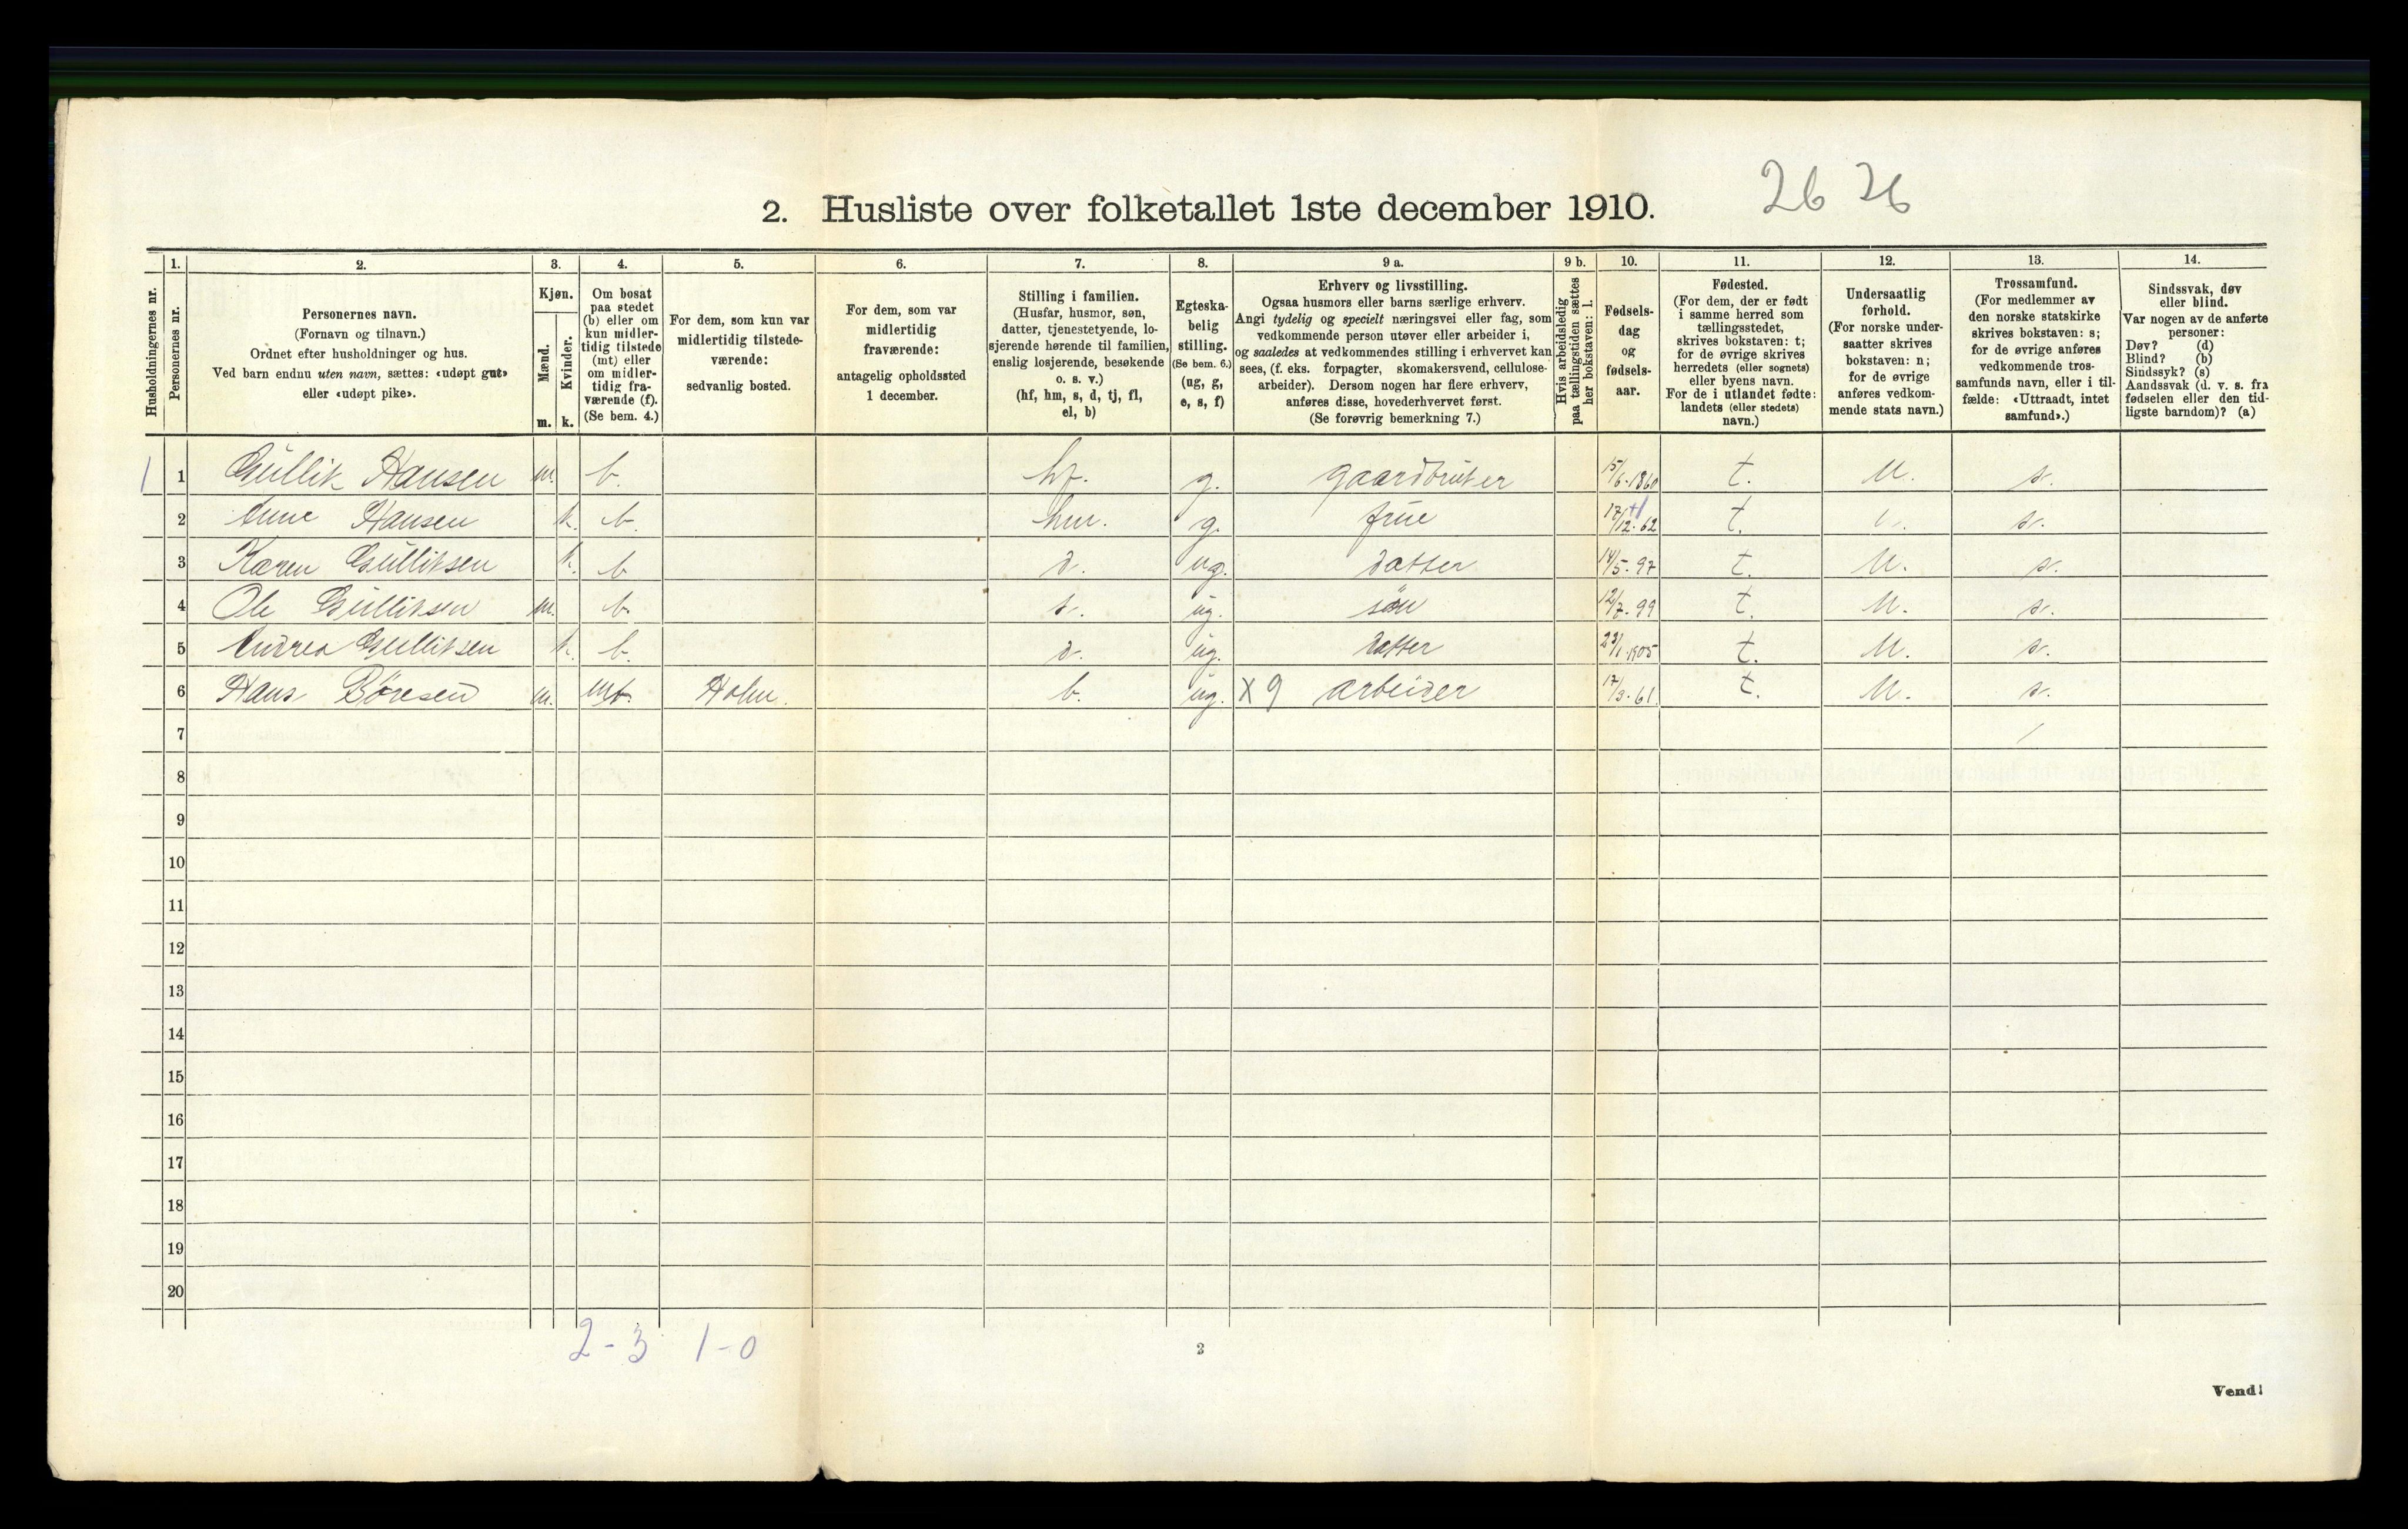 2. Husliste over folketallet 1ste december 1910. 26 26
Husholdningernes nr.
1. Personernes nr.
2. Personernes navn.
(Fornavn og tilnavn.)
Ordnet efter husholdninger og hus.
Ved barn endnu uten navn, sættes: «udøpt gut»
eller «udøpt pike».
3. Kjøn.
Mænd. Kvinder.
m. k.
4. Om bosat
paa stedet
(b) eller om
kun midler-
tidig tilstede
(mt) eller
om midler-
tidig fra-
værende (f).
(Se bem. 4.)
5. For dem, som kun var
midlertidig tilstede-
værende:
sedvanlig bosted.
6. For dem, som var
midlertidig
fraværende:
antagelig opholdssted
1 december.
7. Stilling i familien.
(Husfar, husmor, søn,
datter, tjenestetyende, lo-
sjerende hørende til familien,
enslig losjerende, besøkende
o. s. v.)
(hf, hm, s, d, tj, fl,
el, b)
8. Egteska-
belig
stilling.
(Se bem. 6.)
(ug, g,
e, s, f)
9 a. Erhverv og livsstilling.
Ogsaa husmors eller barns særlige erhverv.
Angi tydelig og specielt næringsvei eller fag, som
vedkommende person utøver eller arbeider i,
og saaledes at vedkommendes stilling i erhvervet kan
sees, (f. eks. forpagter, skomakersvend, cellulose-
arbeider). Dersom nogen har flere erhverv,
anføres disse, hovederhvervet først.
(Se forøvrig bemerkning 7.)
9 b. Hvis arbeidsledig
paa tællingstiden sættes
her bokstaven: l.
10. Fødsels-
dag
og
fødsels-
aar.
11. Fødested.
(For dem, der er født
i samme herred som
tællingsstedet,
skrives bokstaven: t;
for de øvrige skrives
herredets (eller sognets)
eller byens navn.
For de i utlandet fødte:
landets (eller stedets)
navn.)
12. Undersaatlig
forhold.
(For norske under-
saatter skrives
bokstaven: n;
for de øvrige
anføres vedkom-
mende stats navn.)
13. Trossamfund.
(For medlemmer av
den norske statskirke
skrives bokstaven: s;
for de øvrige anføres
vedkommende tros-
samfunds navn, eller i til-
fælde: «Uttraadt, intet
samfund».)
14. Sindssvak, døv
eller blind.
Var nogen av de anførte
personer:
Døv? (d)
Blind? (b)
Sindssyk? (s)
Aandssvak (d. v. s. fra
fødselen eller den tid-
ligste barndom)? (a)
1 1 Gullik Hansen m. b. hf. g. gaardbruker 15/6-1860 t. n. s.
2 Anne Hansen k. b. hm. g. frue 17/12-62 t. s.
3 Karen Gulliksen k. b d. ug. datter 14/5-97 t. n. s.
4 Ole Gulliksen m. b. s. ug. søn 12/7-99 t. n. s.
5 Andrea Gulliksen k. b. d. ug. datter 23/1-1905 t. n. s.
6 Hans Børesen m. mt. Holm. b. ug. X 9 arbeider 17/3-61. t. n. s.
7
8
9
10
11
12
13
14
15
16
17
18
19
20
2-3 1-0
Vend!